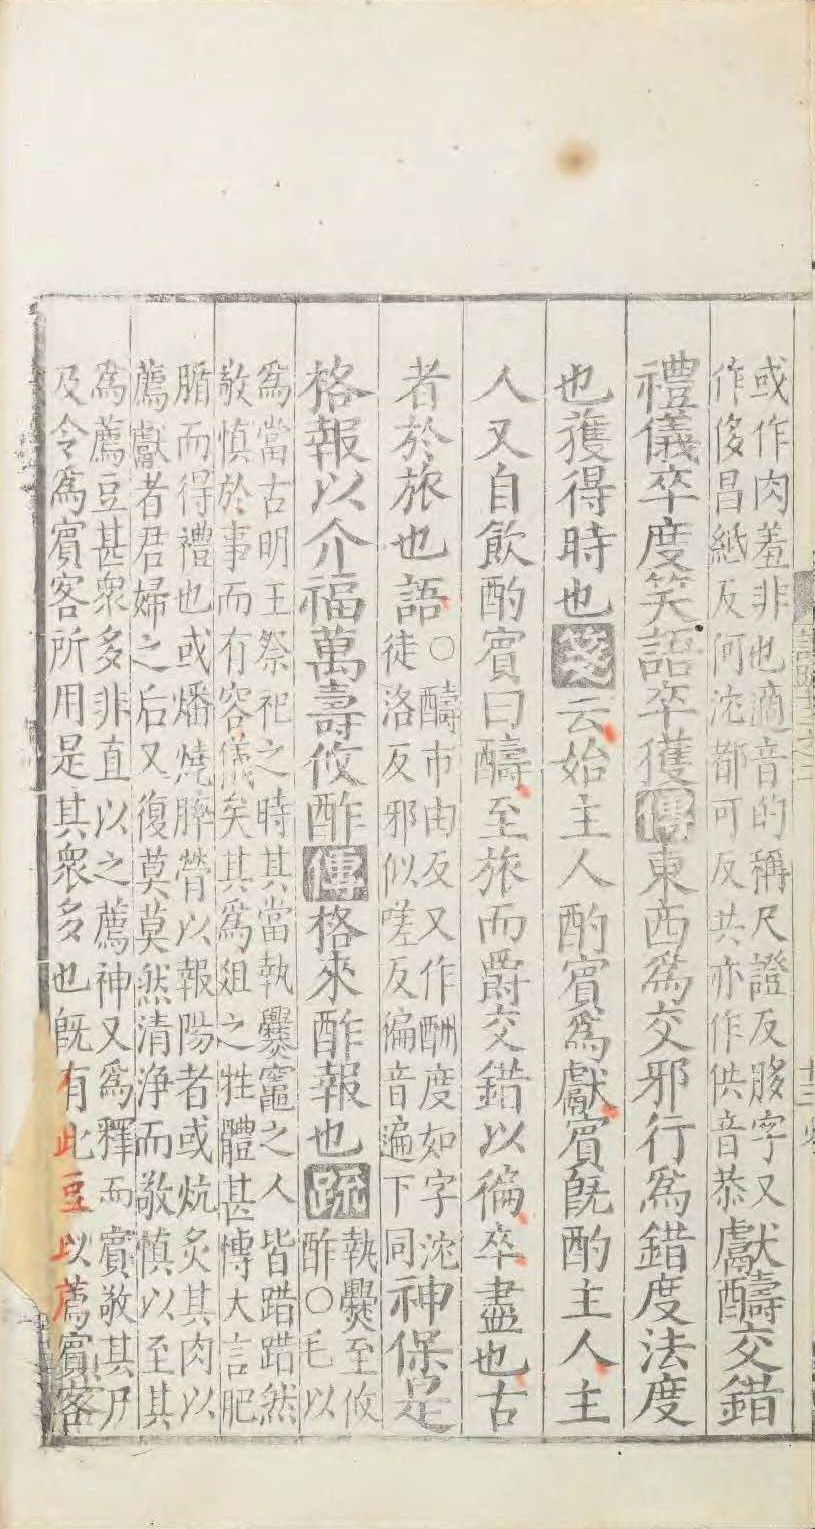 或作肉羞非也適音的稱尺證反胗字又
作侈昌紙反何沈都可反共亦作供音恭
獻醻交錯
禮儀卒度笑語卒獲傳東西爲交邪行爲錯度法度
也獲得時也箋云始主人酌賓爲獻賓既酌主人主
人又自飲酌賓曰醻至旅而爵交錯以徧卒盡也古
者於旅也語
○醻市由反又作酬度如字沈
徒洛反邪似嗟反徧音遍下同
神保是
格報以介福萬壽攸酢傳格來酢報也疏
執爨至攸
酢○毛以
爲當古明王祭祀之時其當執爨竈之人皆踖踖然
敬慎於事而有容儀矣其爲俎之牲體甚博大言肥
腯而得禮也或燔燒膟膋以報陽者或炕炙其肉以
薦獻者君婦之后又復莫莫然清淨而敬慎以至其
爲薦豆甚衆多非直以之薦神又爲釋而賓敬其尸
及令爲賓客所用是其衆多也既有此豆以薦賓客